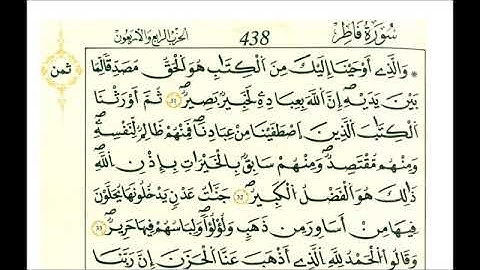 سُورَةُ فَاطِرٍ 438 الحزب الرابع والأربعون
ثمن
وَالذِے أَوْحَيْنَا إِلَيْكَ مِنَ الْكِتَٰبِ هُوَ الْحَقُّ مُصَدِّقاٗ لِّمَا
بَيْنَ يَدَيْهِۖ إِنَّ اَللَّهَ بِعِبَادِهِۦ لَخَبِيرُۢ بَصِيرٞۖ 31 ثُمَّ أَوْرَثْنَا
اَلْكِتَٰبَ اَلذِينَ اَصْطَفَيْنَا مِنْ عِبَادِنَاۖ فَمِنْهُمْ ظَالِمٞ لِّنَفْسِهِۦۖ
وَمِنْهُم مُّقْتَصِدٞۖ وَمِنْهُمْ سَابِقُۢ بِالْخَيْرَٰتِ بِإِذْنِ اِللَّهِۖ
ذَٰلِكَ هُوَ اَلْفَضْلُ اُلْكَبِيرُۖ 32 جَنَّٰتُ عَدْنٖ يَدْخُلُونَهَا يُحَلَّوْنَ
فِيهَا مِنَ اَسَاوِرَ مِن ذَهَبٖ وَلُؤْلُؤاٗۖ وَلِبَاسُهُمْ فِيهَا حَرِيرٞۖ 33
وَقَالُواْ اُلْحَمْدُ لِلهِ اِلذِےٓ أَذْهَبَ عَنَّا اَلْحَزَنَۖ إِنَّ رَبَّنَا